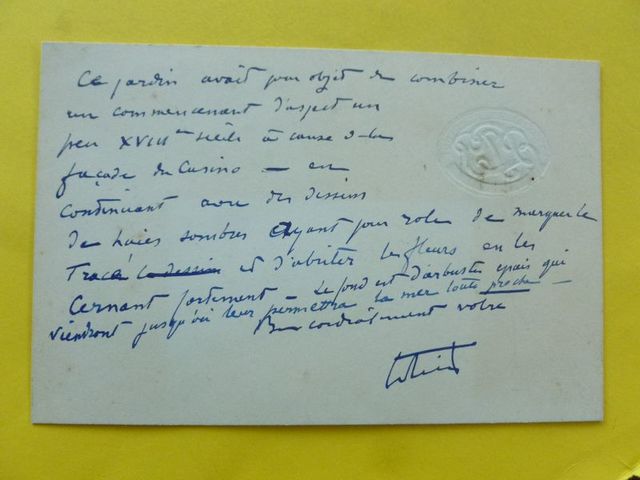 Ce jardin avait pour objet de combiner
un commencement d'aspect un
peu XVIIIème siècle à cause de la
façade du Casino — en
continuant avec des dessins
de haies sombres ayant pour role de marquer le
Tracé le dessin et d'abriter les fleurs en les
Cernant fortement — Le fond est d'arbustes épais qui
viendront jusqu'où leur permettra la mer toute proche —
Bien cordialement votre